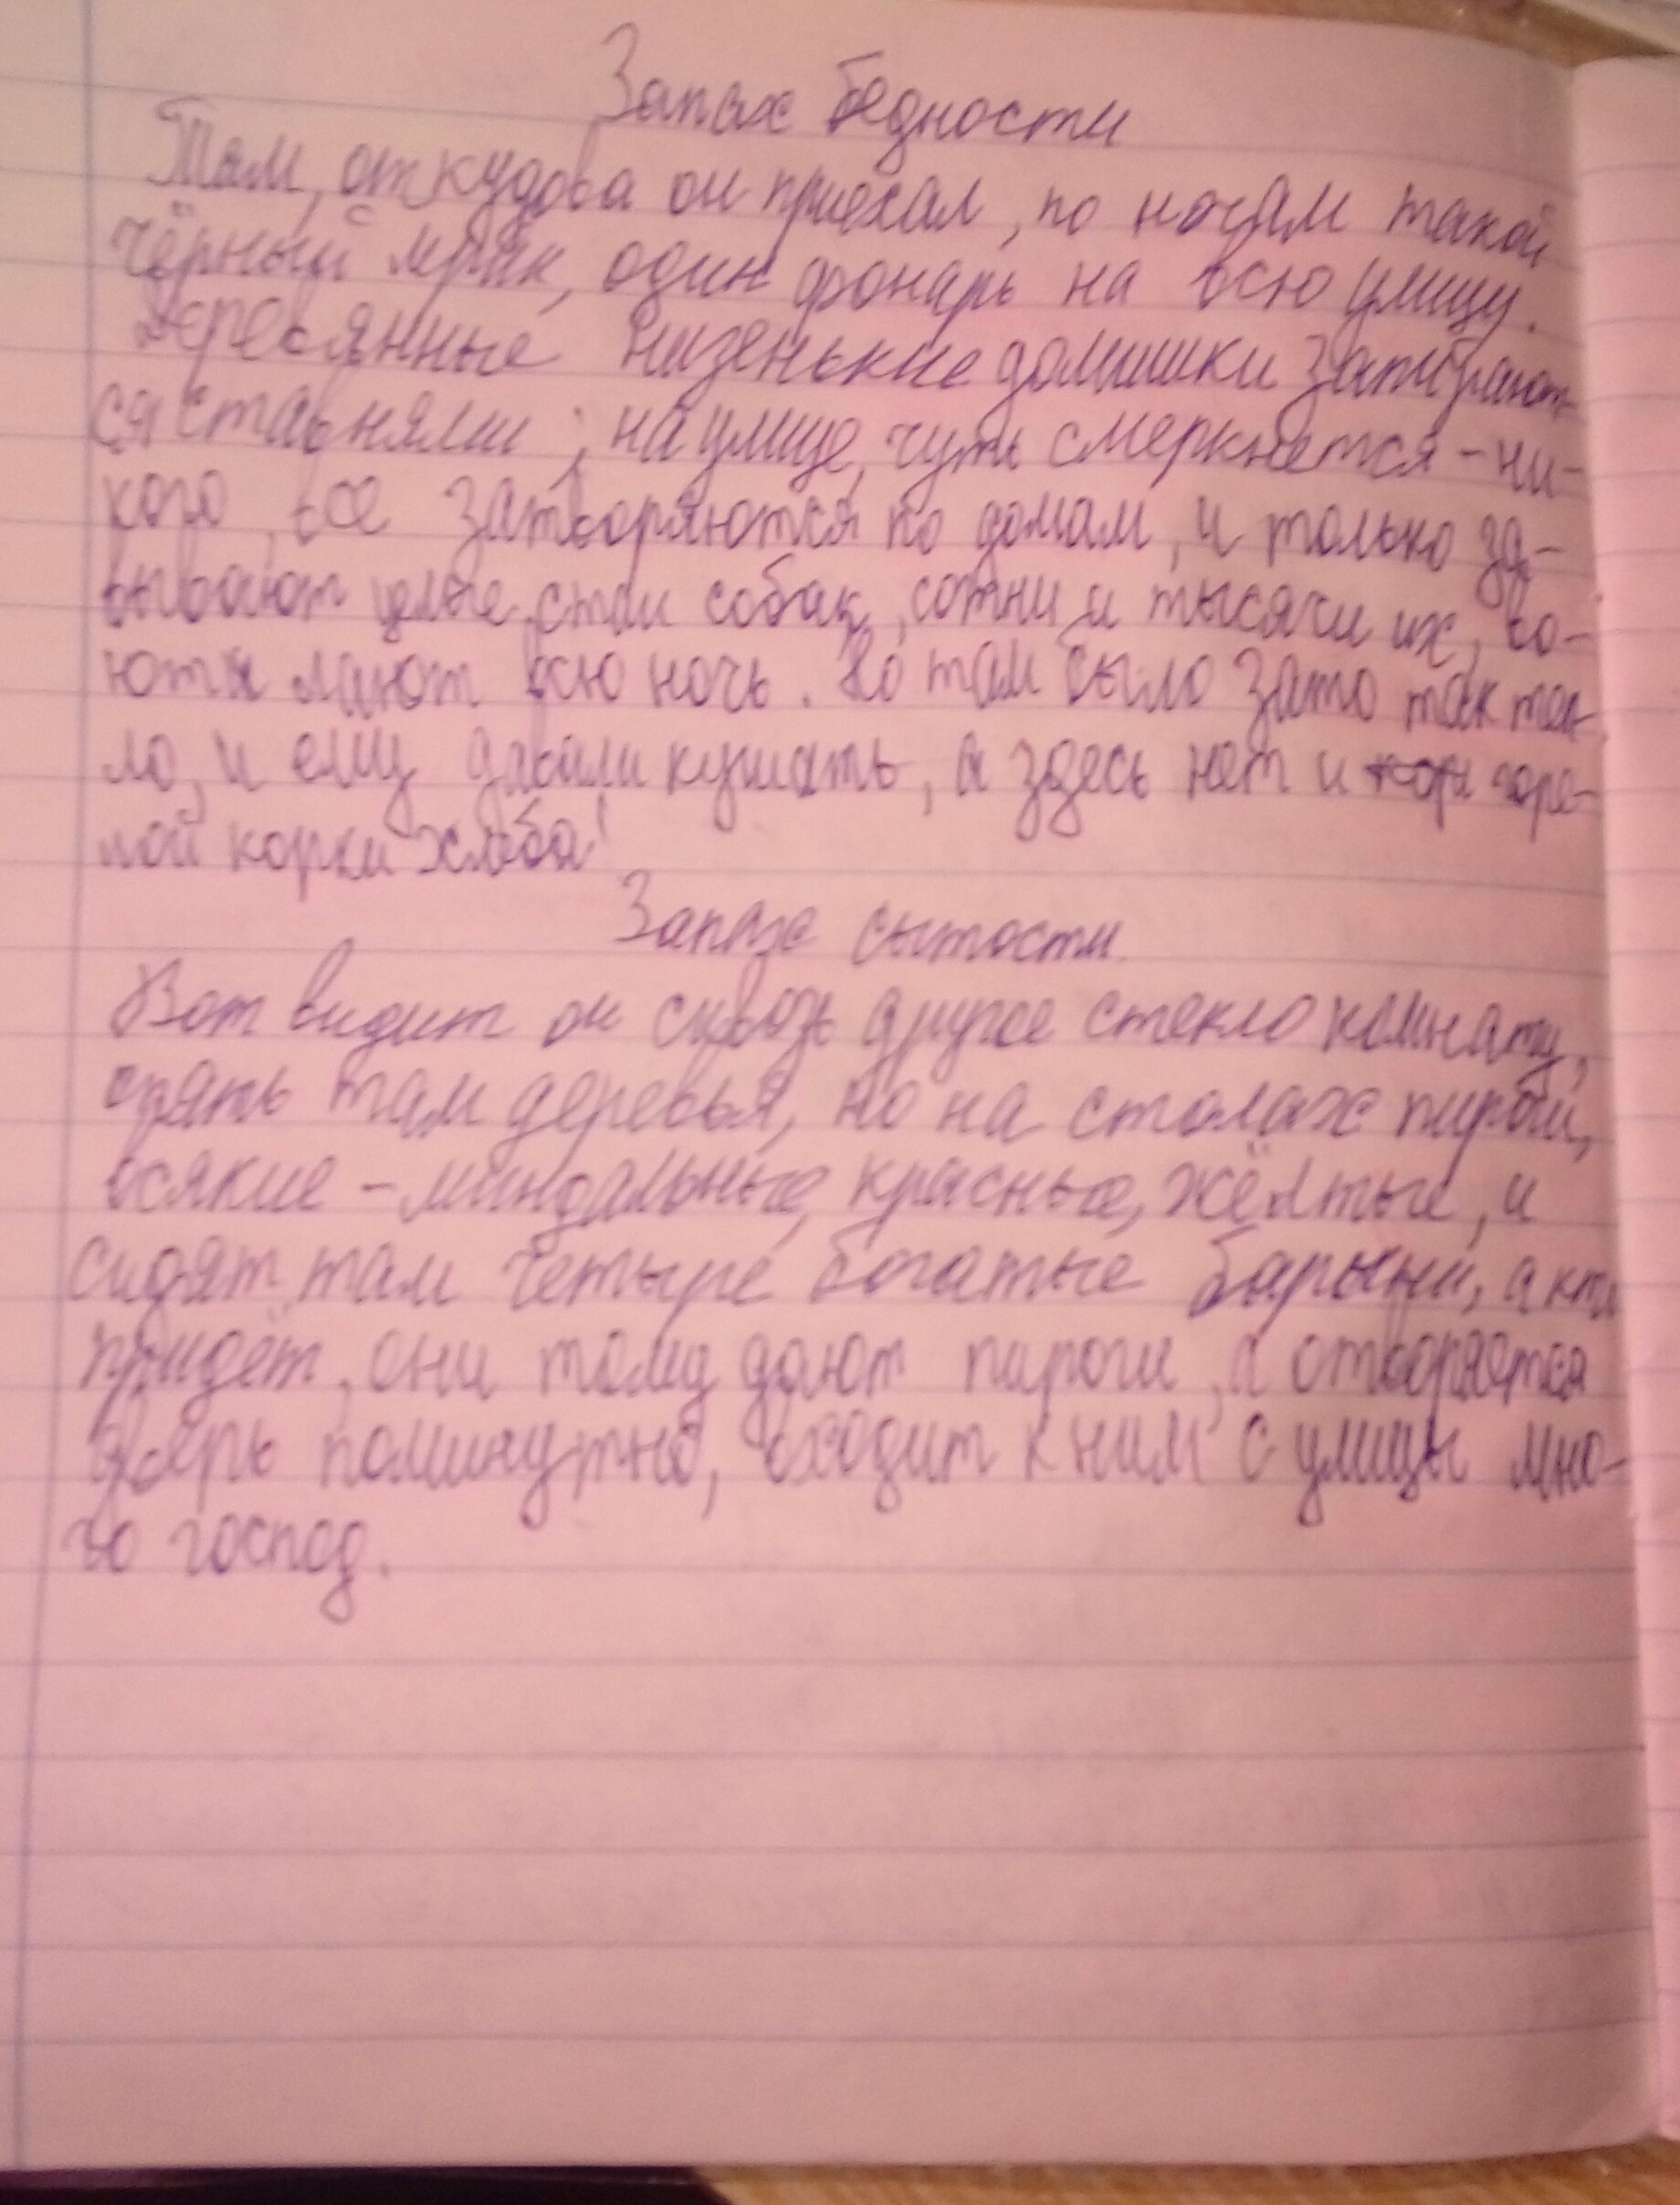 Запах бедности
Там, откудова он приехал, по ночам такой
чёрный мрак, один фонарь на всю улицу.
Деревянные низенькие домишки запирают-
ся ставнями; на улице, чуть смеркнется - ни-
кого, все затворяются по домам, и только за-
вывают целые стаи собак, сотни и тысячи их, во-
ют и лают всю ночь. Но там было зато так теп-
ло, и ему давали кушать, а здесь нет и горе-
лой корки хлеба!
Запах сытости
Вот видит он сквозь другое стекло комнату,
опять там деревья, но на столах пироги,
всякие - миндальные, красные, жёлтые, и
сидят там четыре богатые барыни, а кто
придёт, они тому дают пироги, а отворяется
дверь поминутно, входит к ним с улицы мно-
го господ.